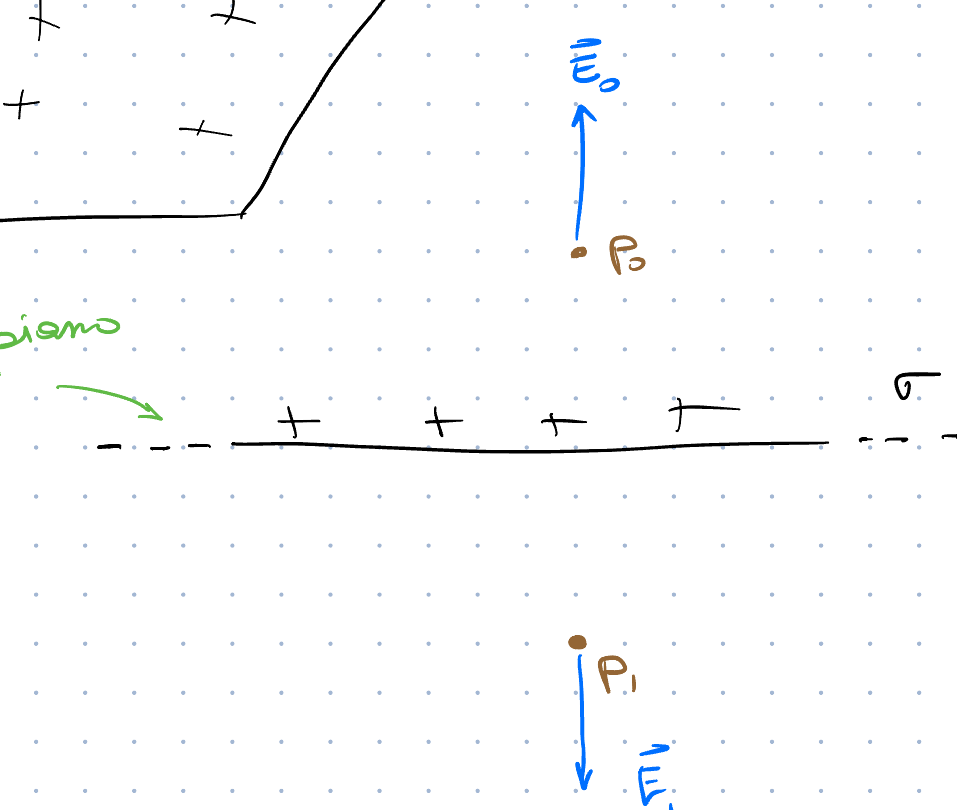 + +
E⃗₀
+
+
P₀
piano
σ
+ + + +
P₁
E⃗₁